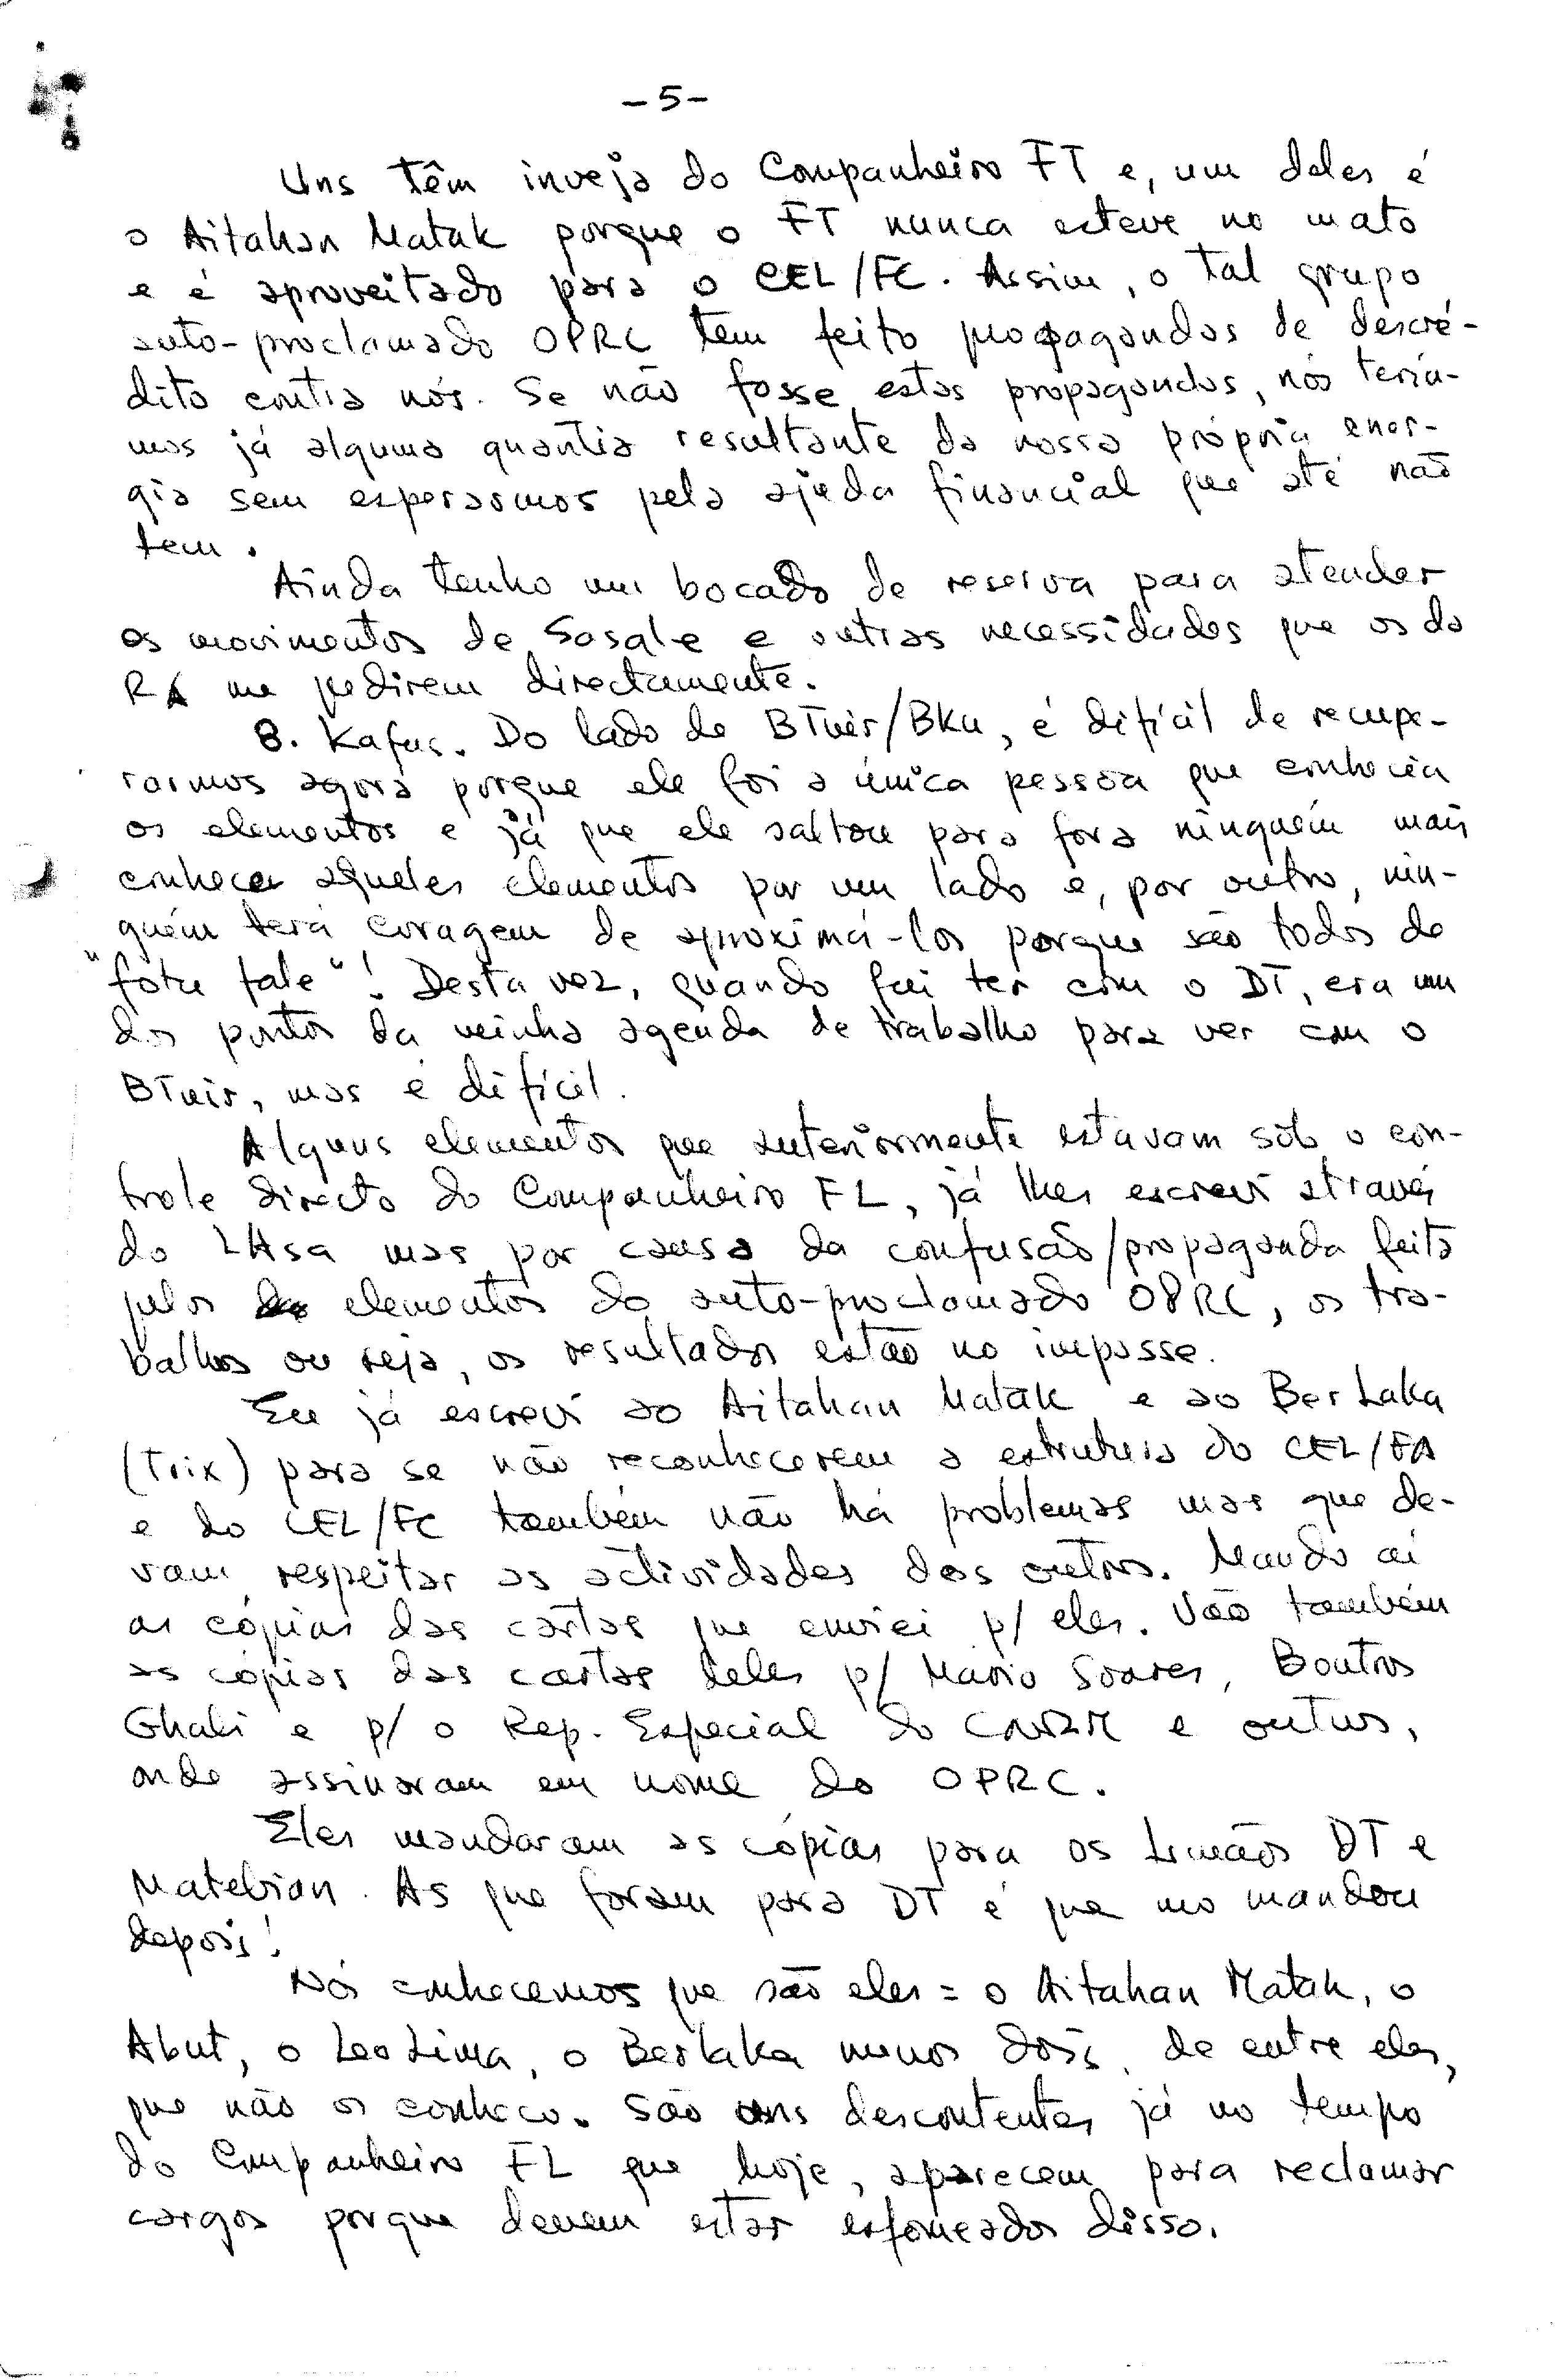 -5-
Uns têm inveja do Companheiro FT e, um deles é
o Aitahan Matak porque o FT nunca esteve no mato
e é aproveitado para o CEL/FC. Assim, o tal grupo
auto-proclamado OPRC tem feito propagandas de descré-
dito contra nós. Se não fosse estas propagandas, nós tería-
mos já alguma quantia resultante da nossa própria ener-
gia sem esperarmos pela ajuda financial que até não
tem.
Ainda tenho um bocado de reserva para atender
os movimentos de Sasale e outras necessidades que os da
RA me pedirem directamente.
8. Kafus. Do lado de BTuir/BKu, é difícil de recupe-
rarmos agora porque ele foi a única pessoa que conhecia
os elementos e já que ele saltou para fora ninguém mais
conhecer aqueles elementos por um lado e, por outro, nin-
guém terá coragem de aproximá-los porque são todos de
"fotu fale"! Desta vez, quando fui ter com o DT, era um
dos pontos da minha agenda de trabalho para ver com o
BTuir, mas é difícil.
Alguns elementos que anteriormente estavam sob o con-
trole directo do Companheiro FL, já lhes escrevi através
do LAsa mas por causa da confusão/propaganda feita
pelos elementos do auto-proclamado OPRC, os tra-
balhos ou seja, os resultados estão no impasse.
Eu já escrevi ao Aitahan Matak e ao Ber Laka
(Trix) para se não reconhecerem a estrutura do CEL/FA
e do CEL/FC também não há problemas mas que de-
vam respeitar as actividades dos outros. Mando aí
as cópias das cartas que enviei p/ eles. Vão também
as cópias das cartas deles p/ Mario Soares, Boutros
Ghali e p/ o Rep. Especial do CNRM e outros,
onde assinaram em nome do OPRC.
Eles mandaram as cópias para os Irmãos DT e
Matebian. As que foram para DT é que mo mandou
depois!
Nós conhecemos que são eles = o Aitahan Matak, o
Abut, o Leo Lima, o Berlaka menos dois, de entre eles,
que não os conheço. São uns descontentes já no tempo
do Companheiro FL que hoje, aparecem para reclamar
cargos porque devem estar esfomeados disso.